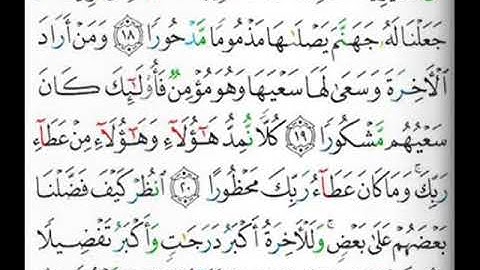 جَعَلْنَا لَهُۥ جَهَنَّمَ يَصْلَىٰهَا مَذْمُومًا مَّدْحُورًا ١٨ وَمَنْ أَرَادَ
ٱلْأَخِرَةَ وَسَعَىٰ لَهَا سَعْيَهَا وَهُوَ مُؤْمِنٌ فَأُو۟لَٰٓئِكَ كَانَ
سَعْيُهُم مَّشْكُورًا ١٩ كُلًّا نُّمِدُّ هَٰٓؤُلَآءِ وَهَٰٓؤُلَآءِ مِنْ عَطَآءِ
رَبِّكَ ۚ وَمَا كَانَ عَطَآءُ رَبِّكَ مَحْظُورًا ٢٠ ٱنظُرْ كَيْفَ فَضَّلْنَا
بَعْضَهُمْ عَلَىٰ بَعْضٍ ۚ وَلَلْأَخِرَةُ أَكْبَرُ دَرَجَٰتٍ وَأَكْبَرُ تَفْضِيلًا